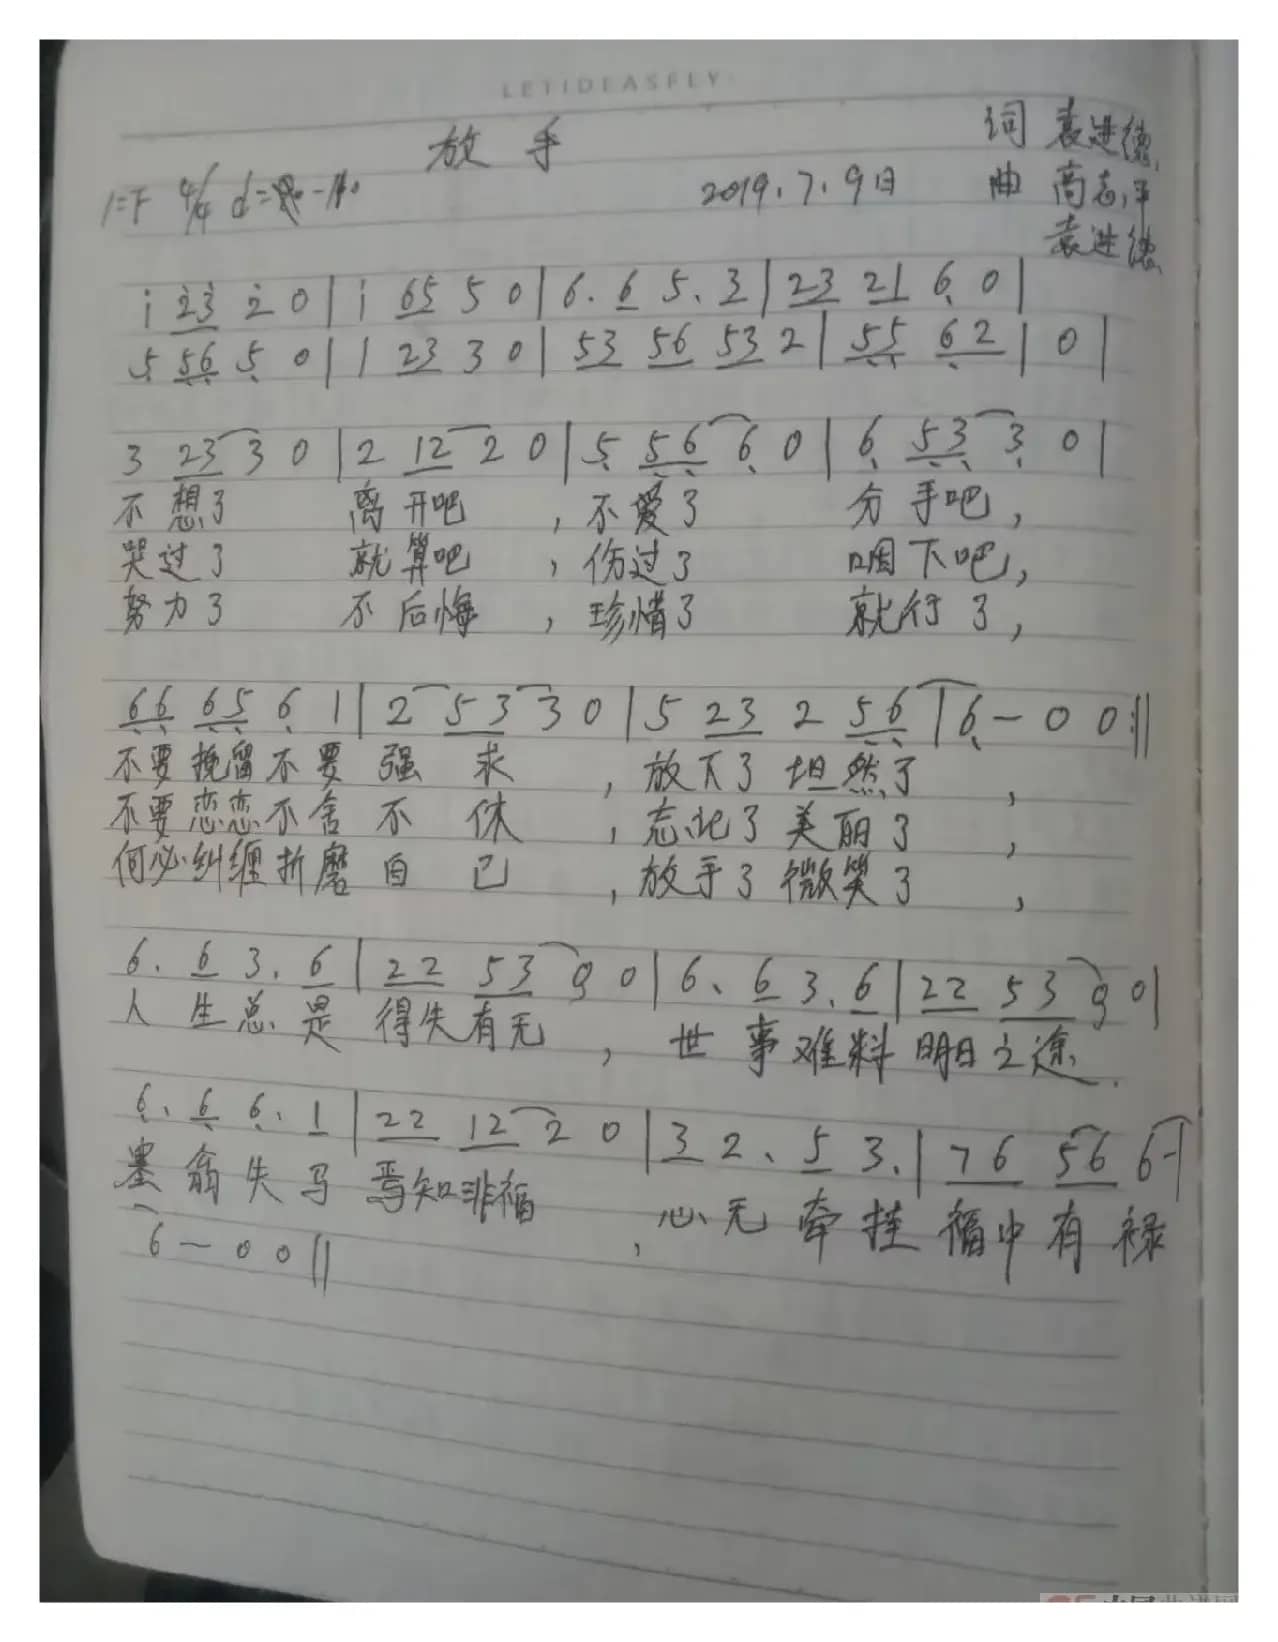 LETIDEASFLY
放手 词 袁进德
1=F 4/4 2019.7.9日 曲 高志平
袁进德
i 23 2 0 | i 65 5 0 | 6. 6 5. 3 | 23 21 6 0 |
5 56 5 0 | 1 23 3 0 | 53 56 53 2 | 55 62 | 0 |
3 23 3 0 | 2 12 2 0 | 5 56 6 0 | 6 53 3 0 |
不想了 离开吧 ,不爱了 分手吧,
哭过了 就算吧 ,伤过了 咽下吧,
努力了 不后悔 ,珍惜了 就行了,
66 65 6 1 | 2 53 3 0 | 5 23 2 56 | 6 - 0 0 :||
不要挽留不要 强 求 ,放下了 坦然了 ,
不要恋恋不舍 不 休 ,忘记了 美丽了 ,
何必纠缠折磨 自 己 ,放手了 微笑了 ,
6. 6 3. 6 | 22 53 0 | 6. 6 3. 6 | 22 53 0 |
人生总是 得失有无 , 世事难料 明日之途.
6. 6 6. 1 | 22 12 2 0 | 3 2. 5 3. | 76 56 6 - |
塞翁失马 焉知非福 , 心无牵挂 福中有禄
6 - 0 0 ||